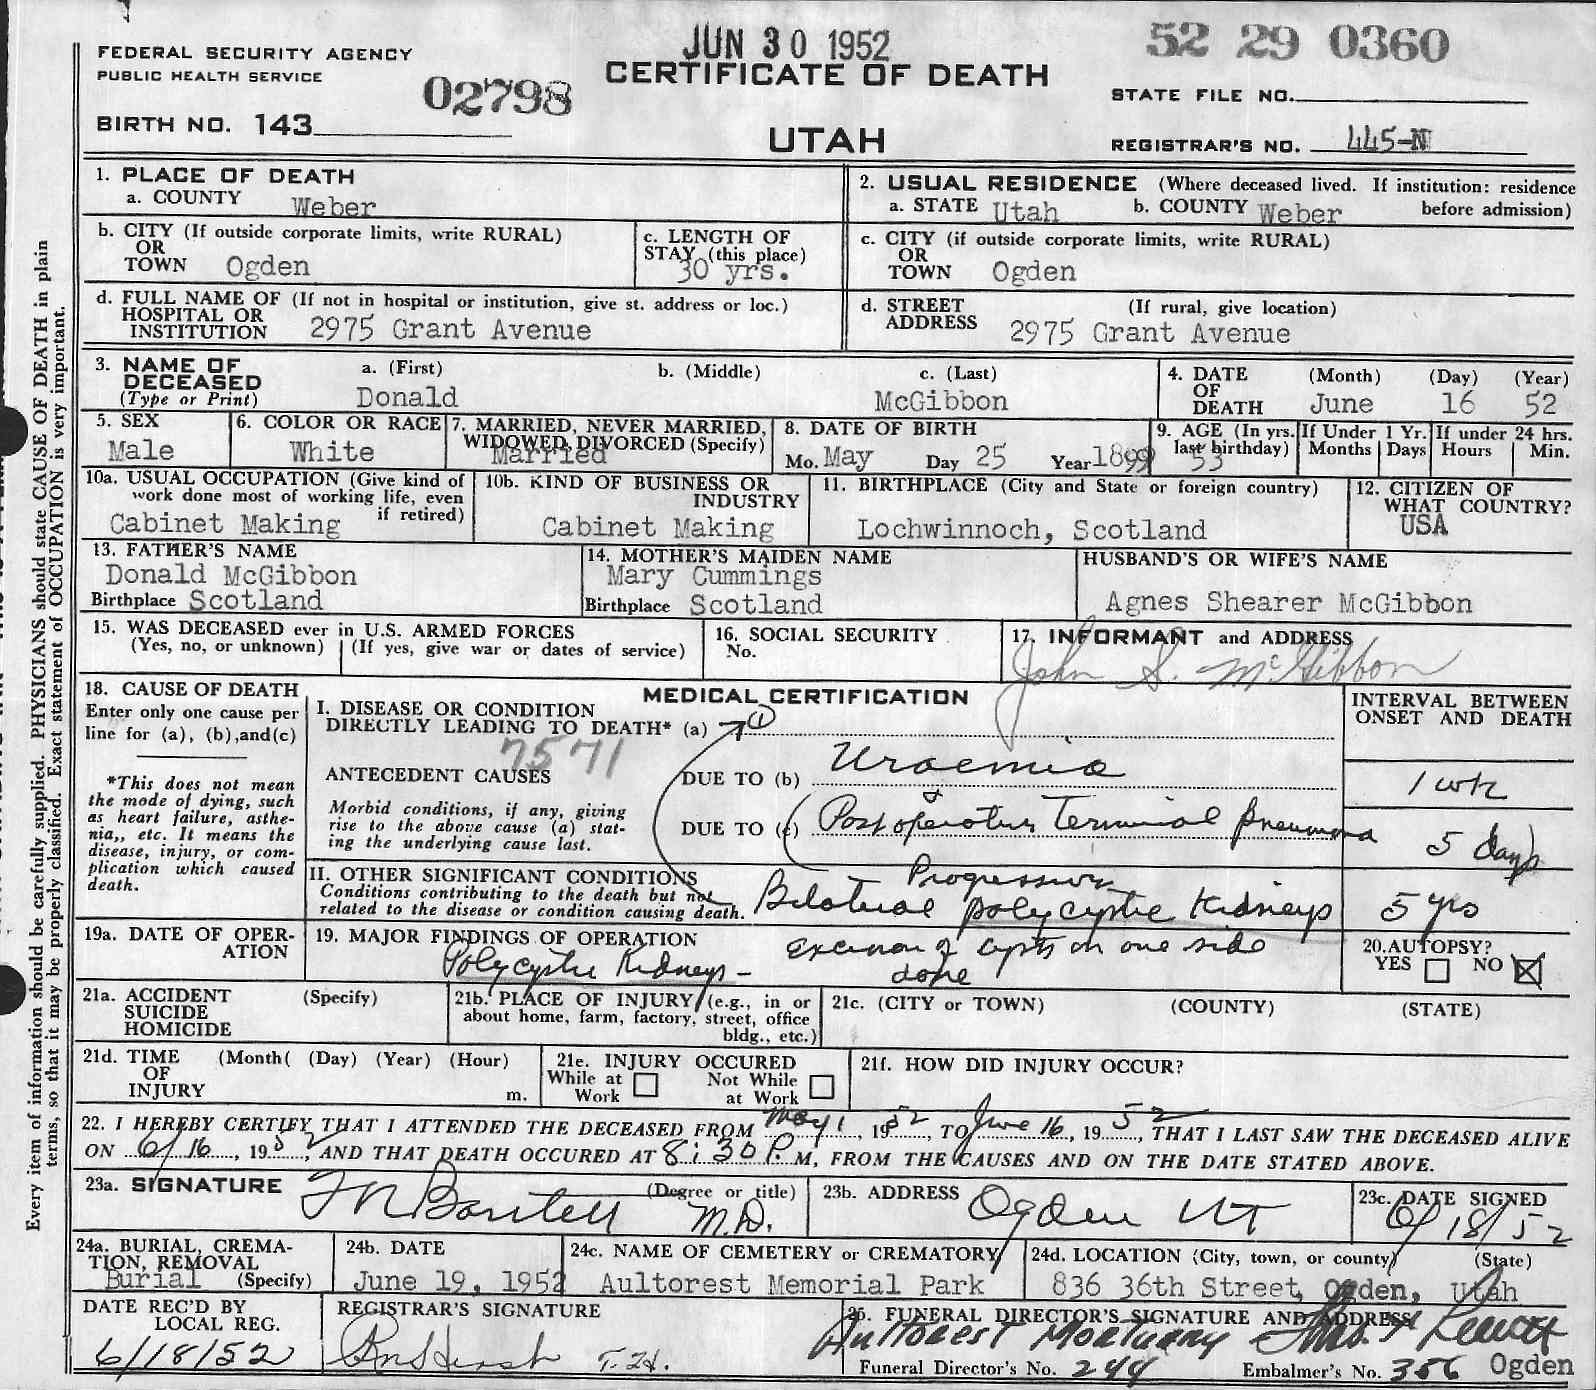 JUN 30 1952
52 29 0360
FEDERAL SECURITY AGENCY
PUBLIC HEALTH SERVICE
02798
CERTIFICATE OF DEATH
STATE FILE NO.
BIRTH NO. 143
UTAH
REGISTRAR'S NO. 445-N
Every item of information should be carefully supplied. PHYSICIANS should state CAUSE OF DEATH in plain
terms, so that it may be properly classified. Exact statement of OCCUPATION is very important.
1. PLACE OF DEATH
a. COUNTY Weber
2. USUAL RESIDENCE (Where deceased lived. If institution: residence
a. STATE Utah b. COUNTY Weber before admission)
b. CITY (If outside corporate limits, write RURAL)
OR
TOWN Ogden
c. LENGTH OF
STAY (this place)
30 yrs.
c. CITY (if outside corporate limits, write RURAL)
OR
TOWN Ogden
d. FULL NAME OF (If not in hospital or institution, give st. address or loc.)
HOSPITAL OR
INSTITUTION 2975 Grant Avenue
d. STREET (If rural, give location)
ADDRESS 2975 Grant Avenue
3. NAME OF
DECEASED
(Type or Print)
a. (First) b. (Middle) c. (Last)
Donald McGibbon
4. DATE (Month) (Day) (Year)
OF
DEATH June 16 52
5. SEX
Male
6. COLOR OR RACE
White
7. MARRIED, NEVER MARRIED,
WIDOWED, DIVORCED (Specify)
Married
8. DATE OF BIRTH
Mo. May Day 25 Year 1899
9. AGE (In yrs.
last birthday)
53
If Under 1 Yr.
Months Days
If under 24 hrs.
Hours Min.
10a. USUAL OCCUPATION (Give kind of
work done most of working life, even
if retired)
Cabinet Making
10b. KIND OF BUSINESS OR
INDUSTRY
Cabinet Making
11. BIRTHPLACE (City and State or foreign country)
Lochwinnoch, Scotland
12. CITIZEN OF
WHAT COUNTRY?
USA
13. FATHER'S NAME
Donald McGibbon
Birthplace Scotland
14. MOTHER'S MAIDEN NAME
Mary Cummings
Birthplace Scotland
HUSBAND'S OR WIFE'S NAME
Agnes Shearer McGibbon
15. WAS DECEASED ever in U.S. ARMED FORCES
(Yes, no, or unknown) (If yes, give war or dates of service)
16. SOCIAL SECURITY
No.
17. INFORMANT and ADDRESS
John S. McGibbon
18. CAUSE OF DEATH
Enter only one cause per
line for (a), (b),and(c)
*This does not mean
the mode of dying, such
as heart failure, asthe-
nia,, etc. It means the
disease, injury, or com-
plication which caused
death.
MEDICAL CERTIFICATION
I. DISEASE OR CONDITION
DIRECTLY LEADING TO DEATH* (a) 1
7571
ANTECEDENT CAUSES
DUE TO (b) Uraemia
Morbid conditions, if any, giving
rise to the above cause (a) stat-
ing the underlying cause last.
DUE TO (c) Post operative Terminal pneumonia
II. OTHER SIGNIFICANT CONDITIONS
Conditions contributing to the death but not
related to the disease or condition causing death.
Progressive
Bilateral polycystic Kidneys
INTERVAL BETWEEN
ONSET AND DEATH
1 wk
5 days
5 yrs
19a. DATE OF OPER-
ATION
19. MAJOR FINDINGS OF OPERATION
Polycystic Kidneys - Excision of cysts on one side
done
20.AUTOPSY?
YES NO X
21a. ACCIDENT (Specify)
SUICIDE
HOMICIDE
21b. PLACE OF INJURY (e.g., in or
about home, farm, factory, street, office
bldg., etc.)
21c. (CITY or TOWN) (COUNTY) (STATE)
21d. TIME (Month( (Day) (Year) (Hour)
OF
INJURY m.
21e. INJURY OCCURED
While at Work Not While at Work
21f. HOW DID INJURY OCCUR?
22. I HEREBY CERTIFY THAT I ATTENDED THE DECEASED FROM May 1, 1952, TO June 16, 1952, THAT I LAST SAW THE DECEASED ALIVE
ON 6/16, 1952, AND THAT DEATH OCCURED AT 8:30 P.M, FROM THE CAUSES AND ON THE DATE STATED ABOVE.
23a. SIGNATURE (Degree or title)
Bartlett M.D.
23b. ADDRESS
Ogden UT
23c. DATE SIGNED
6/18/52
24a. BURIAL, CREMA-
TION, REMOVAL
Burial (Specify)
24b. DATE
June 19, 1952
24c. NAME OF CEMETERY or CREMATORY
Aultorest Memorial Park
24d. LOCATION (City, town, or county) (State)
836 36th Street, Ogden, Utah
DATE REC'D BY
LOCAL REG.
6/18/52
REGISTRAR'S SIGNATURE
25. FUNERAL DIRECTOR'S SIGNATURE AND ADDRESS
Aultorest Mortuary
Funeral Director's No. 244 Embalmer's No. 356 Ogden